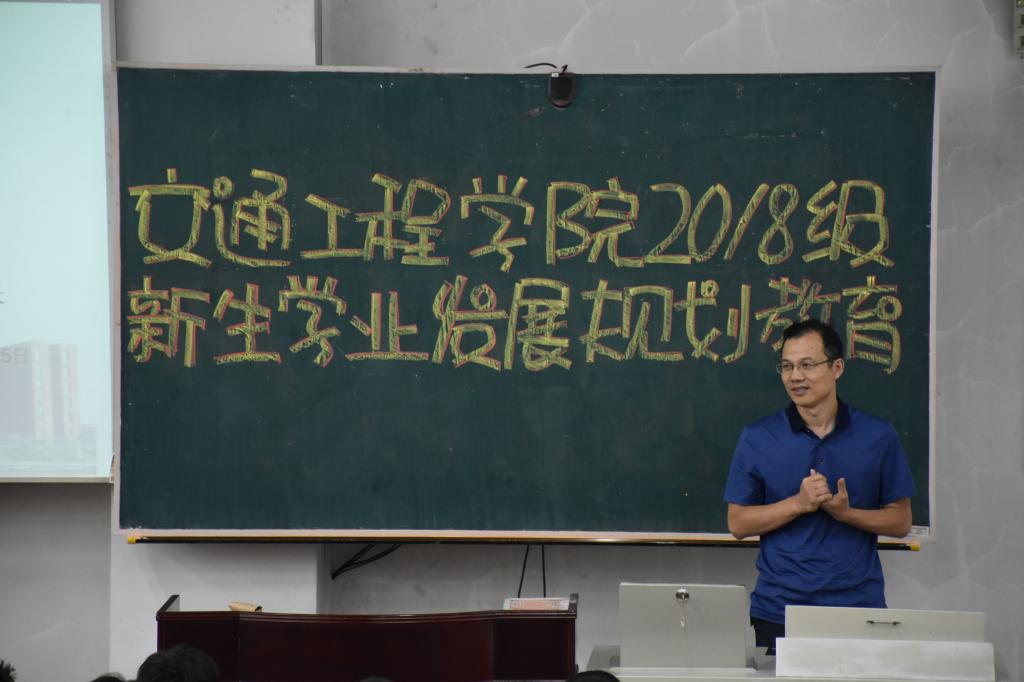 交通工程学院2018级
新生学业发展规划教育
5日